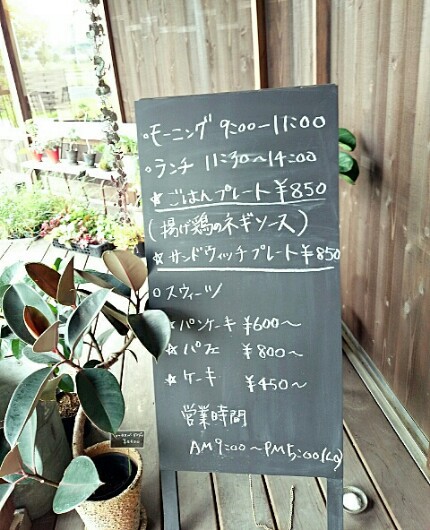 ○モーニング 9:00-11:00
○ランチ 11:30~14:00
☆ごはんプレート¥850
(揚げ鶏のネギソース)
☆サンドウィッチプレート¥850
○スウィーツ
☆パンケーキ ¥600~
☆パフェ ¥800~
☆ケーキ ¥450~
営業時間
AM9:00~PM5:00(LO)